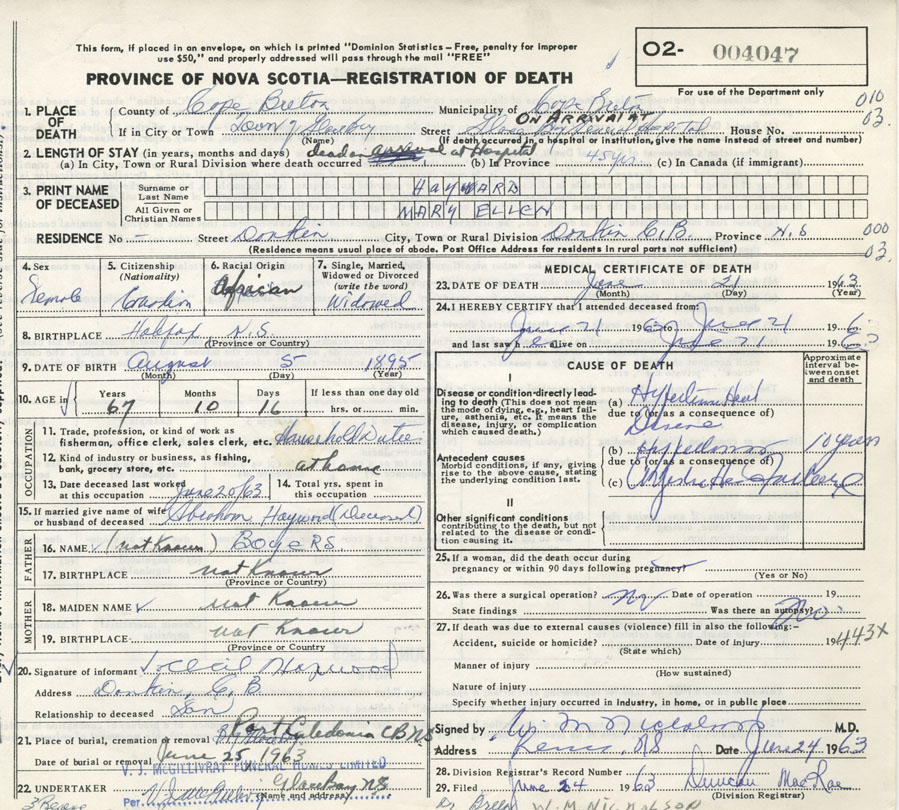 This form, if placed in an envelope, on which is printed "Dominion Statistics – Free, penalty for improper
use $50," and properly addressed will pass through the mail "FREE"
PROVINCE OF NOVA SCOTIA—REGISTRATION OF DEATH
O2- 004047
For use of the Department only
010
03.
1. PLACE OF DEATH
County of Cape Breton Municipality of Cape Breton
ON ARRIVAL AT
If in City or Town Town of Glace Bay Street General Hospital House No.
(Name) (If death occurred in a hospital or institution, give the name instead of street and number)
2. LENGTH OF STAY (in years, months and days) dead on arrival at Hospital
(a) In City, Town or Rural Division where death occurred (b) In Province 45 yrs. (c) In Canada (if immigrant)
3. PRINT NAME OF DECEASED
Surname or Last Name HAYWARD
All Given or Christian Names MARY ELLEN
RESIDENCE No – Street Donkin City, Town or Rural Division Donkin C.B. Province N.S
000
03.
(Residence means usual place of abode. Post Office Address for residents in rural parts not sufficient)
4. Sex Female
5. Citizenship (Nationality) Canadian
6. Racial Origin African
7. Single, Married, Widowed or Divorced (write the word) Widowed
8. BIRTHPLACE Halifax N.S.
(Province or Country)
9. DATE OF BIRTH August 5 1895
(Month) (Day) (Year)
10. AGE in Years 67 Months 10 Days 16 If less than one day old hrs. or min.
OCCUPATION
11. Trade, profession, or kind of work as fisherman, office clerk, sales clerk, etc. Household Duties
12. Kind of industry or business, as fishing, bank, grocery store, etc. at home
13. Date deceased last worked at this occupation June 20/63
14. Total yrs. spent in this occupation
15. If married give name of wife or husband of deceased Abraham Haywood (Deceased)
FATHER
16. NAME (not Known) BOYERS.
17. BIRTHPLACE not Known
(Province or Country)
MOTHER
18. MAIDEN NAME not Known
19. BIRTHPLACE not Known
(Province or Country)
20. Signature of informant Cecil Haywood
Address Donkin, C.B.
Relationship to deceased Son
21. Place of burial, cremation or removal Port Caledonia CB NS
Date of burial or removal June 25, 1963
V. J. McGILLIVRAY FUNERAL HOMES LIMITED
22. UNDERTAKER Glace Bay NS
Per. (Name and address)
MEDICAL CERTIFICATE OF DEATH
23. DATE OF DEATH June 21 1963
(Month) (Day) (Year)
24. I HEREBY CERTIFY that I attended deceased from:
June 21 1963 to June 21 196
and last saw h alive on June 21 196
CAUSE OF DEATH
Approximate interval between onset and death
I
Disease or condition directly leading to death (This does not mean the mode of dying, e.g., heart failure, asthenia, etc. It means the disease, injury, or complication which caused death.)
(a) Heart
due to (or as a consequence of)
Disease
Antecedent causes
Morbid conditions, if any, giving rise to the above cause, stating the underlying condition last.
(b) 10 years
due to (or as a consequence of)
(c)
II
Other significant conditions
contributing to the death, but not related to the disease or condition causing it.
25. If a woman, did the death occur during
pregnancy or within 90 days following pregnancy?
(Yes or No)
26. Was there a surgical operation? No Date of operation 19
State findings Was there an autopsy? No
27. If death was due to external causes (violence) fill in also the following:–
Accident, suicide or homicide? Date of injury 19
(State which)
443X
Manner of injury
(How sustained)
Nature of injury
Specify whether injury occurred in industry, in home, or in public place
Signed by Wm. M Nicholson M.D.
Address NS Date June 24 1963
28. Division Registrar's Record Number
29. Filed June 24 1963 Duncan MacRae
(Division Registrar)
W. M. NICHOLSON